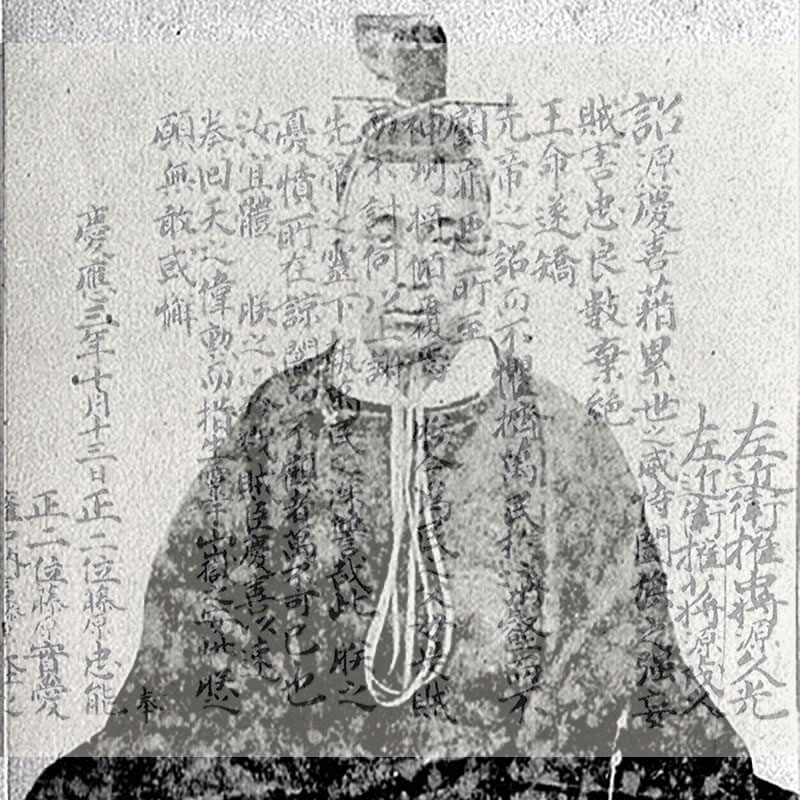 左近衛權中將源久光
左近衛權少將源茂久
詔源慶喜藉累世之威恃闔族之強妄
賊害忠良數棄絶
王命遂矯
先帝之詔而不懼擠萬民於溝壑而不
顧罪惡所至
神州將傾覆焉 朕今為民之父母是賊
而不討何以上謝
先帝之靈下報萬民之深讐哉此 朕之
憂憤所在諒闇而不顧者萬不可已也
汝宜體 朕之心殄戮賊臣慶喜以速
奏回天之偉勳而措生靈于山嶽之安此 朕之
願無敢或懈
奉
慶應三年十月十三日 正二位藤原忠能
正二位藤原實愛